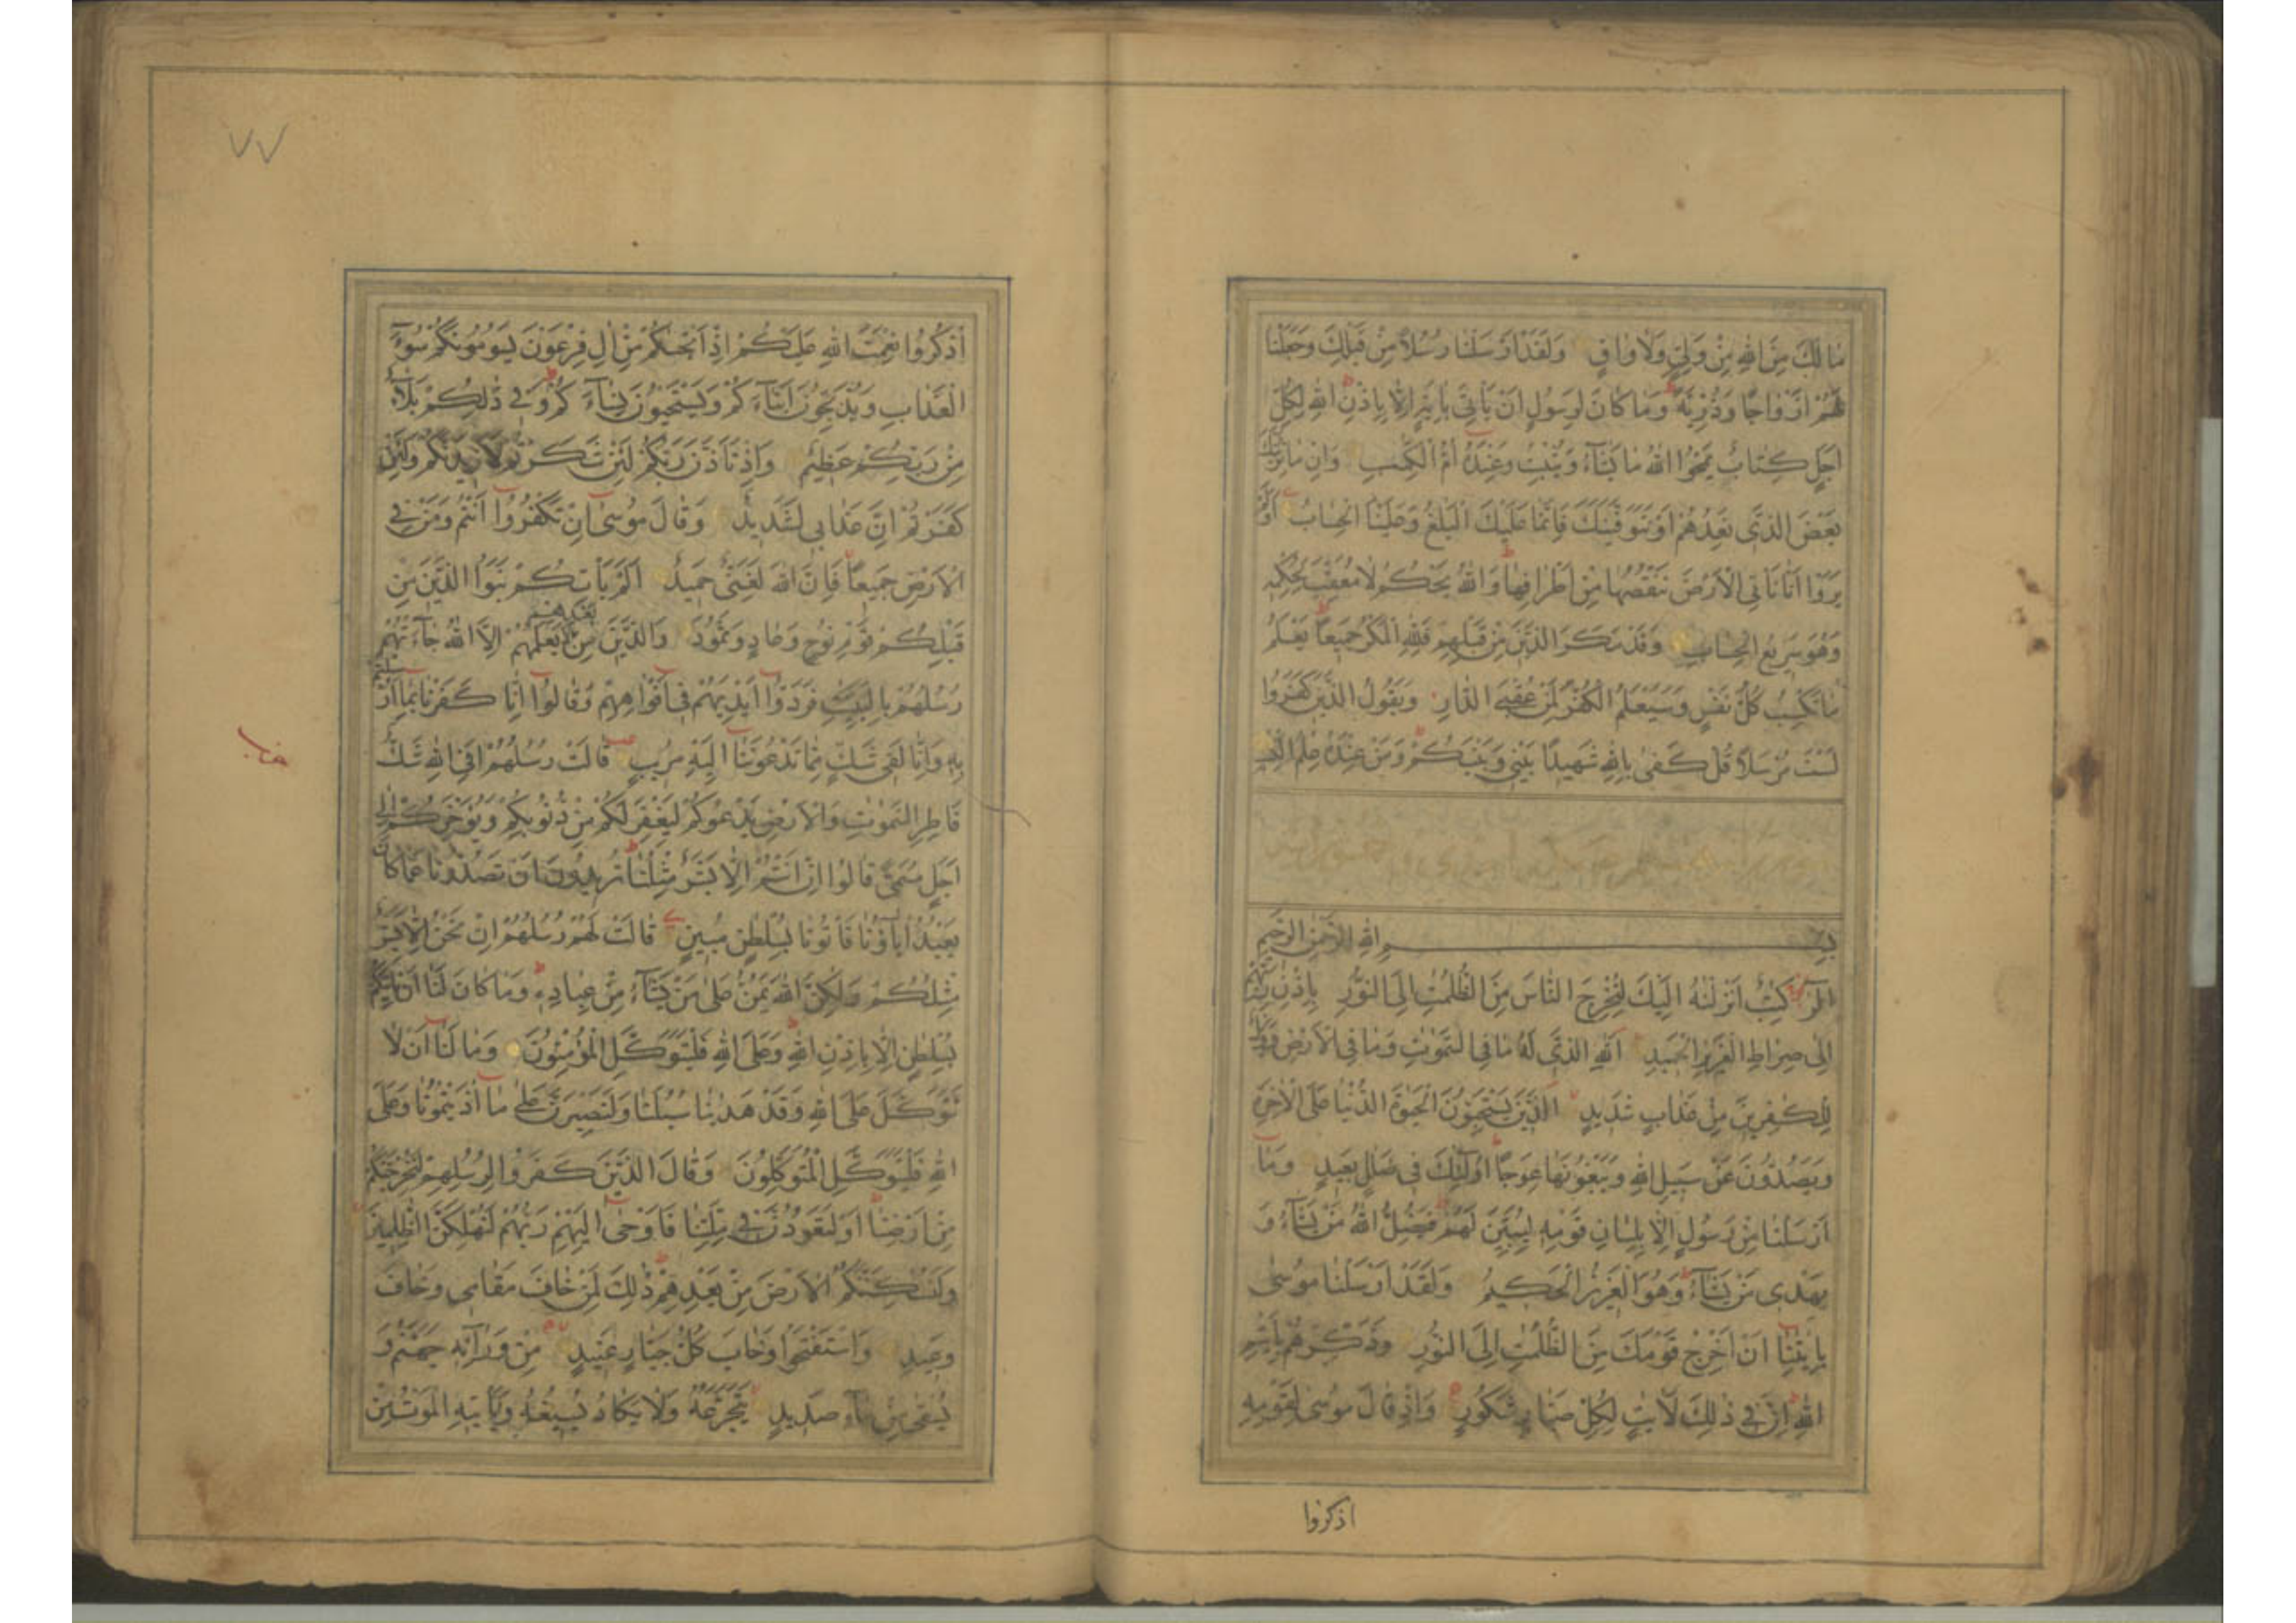 مَا لَكَ مِنَ اللهِ مِنْ وَلِيٍّ وَلَا وَاقٍ وَلَقَدْ اَرْسَلْنَا رُسُلًا مِنْ قَبْلِكَ وَجَعَلْنَا
لَهُمْ اَزْوَاجًا وَذُرِّيَّةً وَمَا كَانَ لِرَسُولٍ اَنْ يَأْتِيَ بِاٰيَةٍ اِلَّا بِاِذْنِ اللهِ لِكُلِّ
اَجَلٍ كِتَابٌ يَمْحُوا اللهُ مَا يَشَآءُ وَيُثْبِتُ وَعِنْدَهُ اُمُّ الْكِتٰبِ وَاِنْ مَا نُرِيَنَّكَ
بَعْضَ الَّذِي نَعِدُهُمْ اَوْ نَتَوَفَّيَنَّكَ فَاِنَّمَا عَلَيْكَ الْبَلٰغُ وَعَلَيْنَا الْحِسَابُ اَوَلَمْ
يَرَوْا اَنَّا نَأْتِي الْاَرْضَ نَنْقُصُهَا مِنْ اَطْرَافِهَا وَاللهُ يَحْكُمُ لَا مُعَقِّبَ لِحُكْمِهِ
وَهُوَ سَرِيعُ الْحِسَابِ وَقَدْ مَكَرَ الَّذِينَ مِنْ قَبْلِهِمْ فَلِلّٰهِ الْمَكْرُ جَمِيعًا يَعْلَمُ
مَا تَكْسِبُ كُلُّ نَفْسٍ وَسَيَعْلَمُ الْكُفّٰرُ لِمَنْ عُقْبَى الدَّارِ وَيَقُولُ الَّذِينَ كَفَرُوا
لَسْتَ مُرْسَلًا قُلْ كَفٰى بِاللهِ شَهِيدًا بَيْنِي وَبَيْنَكُمْ وَمَنْ عِنْدَهُ عِلْمُ الْكِتٰبِ
بِسْمِ اللهِ الرَّحْمٰنِ الرَّحِيمِ
الٓرٰ كِتٰبٌ اَنْزَلْنٰهُ اِلَيْكَ لِتُخْرِجَ النَّاسَ مِنَ الظُّلُمٰتِ اِلَى النُّورِ بِاِذْنِ رَبِّهِمْ
اِلٰى صِرَاطِ الْعَزِيزِ الْحَمِيدِ اَللهِ الَّذِي لَهُ مَا فِي السَّمٰوٰتِ وَمَا فِي الْاَرْضِ وَوَيْلٌ
لِلْكٰفِرِينَ مِنْ عَذَابٍ شَدِيدٍ الَّذِينَ يَسْتَحِبُّونَ الْحَيٰوةَ الدُّنْيَا عَلَى الْاٰخِرَةِ
وَيَصُدُّونَ عَنْ سَبِيلِ اللهِ وَيَبْغُونَهَا عِوَجًا اُولٰٓئِكَ فِي ضَلٰلٍ بَعِيدٍ وَمَا
اَرْسَلْنَا مِنْ رَسُولٍ اِلَّا بِلِسَانِ قَوْمِهِ لِيُبَيِّنَ لَهُمْ فَيُضِلُّ اللهُ مَنْ يَشَآءُ وَ
يَهْدِي مَنْ يَشَآءُ وَهُوَ الْعَزِيزُ الْحَكِيمُ وَلَقَدْ اَرْسَلْنَا مُوسٰى
بِاٰيٰتِنَا اَنْ اَخْرِجْ قَوْمَكَ مِنَ الظُّلُمٰتِ اِلَى النُّورِ وَذَكِّرْهُمْ بِاَيّٰىمِ
اللهِ اِنَّ فِي ذٰلِكَ لَاٰيٰتٍ لِكُلِّ صَبَّارٍ شَكُورٍ وَاِذْ قَالَ مُوسٰى لِقَوْمِهِ
اذكروا
٧٧
اذْكُرُوا نِعْمَتَ اللهِ عَلَيْكُمْ اِذْ اَنْجٰىكُمْ مِنْ اٰلِ فِرْعَوْنَ يَسُومُونَكُمْ سُوٓءَ
الْعَذَابِ وَيُذَبِّحُونَ اَبْنَآءَكُمْ وَيَسْتَحْيُونَ نِسَآءَكُمْ وَفِي ذٰلِكُمْ بَلَآءٌ
مِنْ رَبِّكُمْ عَظِيمٌ وَاِذْ تَاَذَّنَ رَبُّكُمْ لَئِنْ شَكَرْتُمْ لَاَزِيدَنَّكُمْ وَلَئِنْ
كَفَرْتُمْ اِنَّ عَذَابِي لَشَدِيدٌ وَقَالَ مُوسٰى اِنْ تَكْفُرُوا اَنْتُمْ وَمَنْ فِي
الْاَرْضِ جَمِيعًا فَاِنَّ اللهَ لَغَنِيٌّ حَمِيدٌ اَلَمْ يَأْتِكُمْ نَبَؤُا الَّذِينَ مِنْ
قَبْلِكُمْ قَوْمِ نُوحٍ وَعَادٍ وَثَمُودَ وَالَّذِينَ مِنْ بَعْدِهِمْ لَا يَعْلَمُهُمْ اِلَّا اللهُ جَآءَتْهُمْ
رُسُلُهُمْ بِالْبَيِّنٰتِ فَرَدُّوا اَيْدِيَهُمْ فِي اَفْوَاهِهِمْ وَقَالُوا اِنَّا كَفَرْنَا بِمَا اُرْسِلْتُمْ
بِهِ وَاِنَّا لَفِي شَكٍّ مِمَّا تَدْعُونَنَا اِلَيْهِ مُرِيبٍ قَالَتْ رُسُلُهُمْ اَفِي اللهِ شَكٌّ
فَاطِرِ السَّمٰوٰتِ وَالْاَرْضِ يَدْعُوكُمْ لِيَغْفِرَ لَكُمْ مِنْ ذُنُوبِكُمْ وَيُؤَخِّرَكُمْ اِلٰى
اَجَلٍ مُسَمًّى قَالُوا اِنْ اَنْتُمْ اِلَّا بَشَرٌ مِثْلُنَا تُرِيدُونَ اَنْ تَصُدُّونَا عَمَّا كَانَ
يَعْبُدُ اٰبَآؤُنَا فَأْتُونَا بِسُلْطٰنٍ مُبِينٍ قَالَتْ لَهُمْ رُسُلُهُمْ اِنْ نَحْنُ اِلَّا بَشَرٌ
مِثْلُكُمْ وَلٰكِنَّ اللهَ يَمُنُّ عَلٰى مَنْ يَشَآءُ مِنْ عِبَادِهِ وَمَا كَانَ لَنَا اَنْ نَأْتِيَكُمْ
بِسُلْطٰنٍ اِلَّا بِاِذْنِ اللهِ وَعَلَى اللهِ فَلْيَتَوَكَّلِ الْمُؤْمِنُونَ وَمَا لَنَا اَنْ لَا
نَتَوَكَّلَ عَلَى اللهِ وَقَدْ هَدٰىنَا سُبُلَنَا وَلَنَصْبِرَنَّ عَلٰى مَا اٰذَيْتُمُونَا وَعَلَى
اللهِ فَلْيَتَوَكَّلِ الْمُتَوَكِّلُونَ وَقَالَ الَّذِينَ كَفَرُوا لِرُسُلِهِمْ لَنُخْرِجَنَّكُمْ
مِنْ اَرْضِنَا اَوْ لَتَعُودُنَّ فِي مِلَّتِنَا فَاَوْحٰى اِلَيْهِمْ رَبُّهُمْ لَنُهْلِكَنَّ الظّٰلِمِينَ
وَلَنُسْكِنَنَّكُمُ الْاَرْضَ مِنْ بَعْدِهِمْ ذٰلِكَ لِمَنْ خَافَ مَقَامِي وَخَافَ
وَعِيدِ وَاسْتَفْتَحُوا وَخَابَ كُلُّ جَبَّارٍ عَنِيدٍ مِنْ وَرَآئِهِ جَهَنَّمُ وَ
يُسْقٰى مِنْ مَآءٍ صَدِيدٍ يَتَجَرَّعُهُ وَلَا يَكَادُ يُسِيغُهُ وَيَأْتِيهِ الْمَوْتُ مِنْ